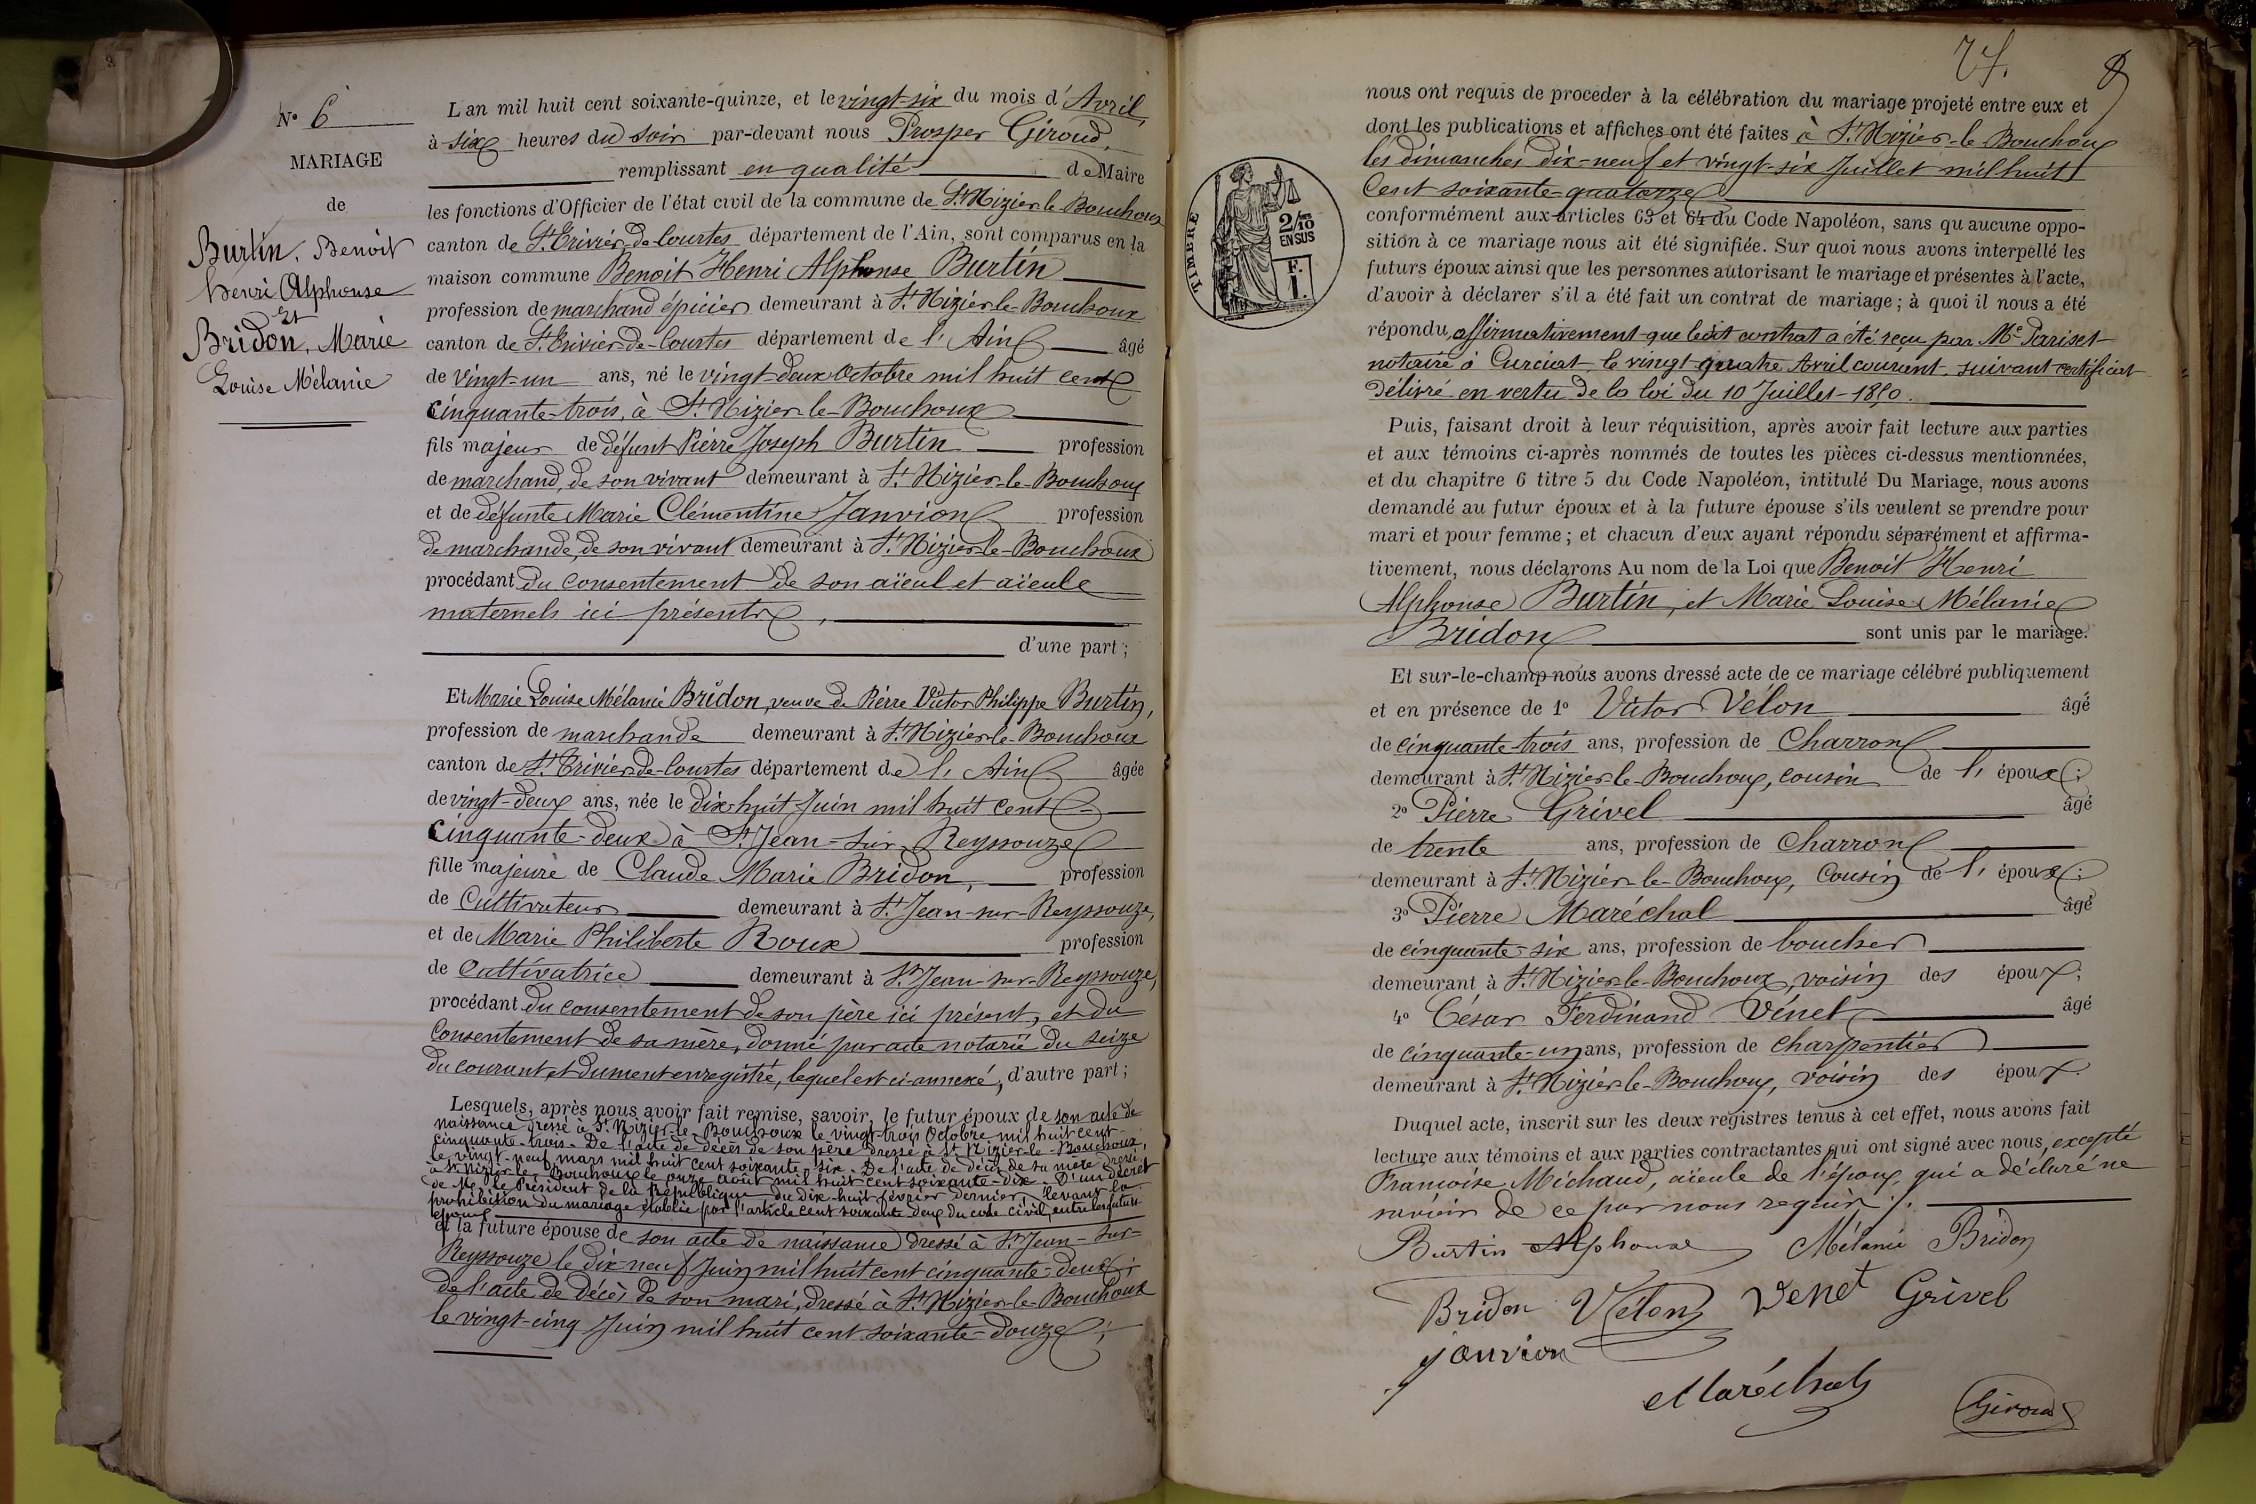 N° 6
MARIAGE
de
Burtin, Benoit
henri Alphonse
Et
Bridon, Marie
Louise Mélanie
L'an mil huit cent soixante-quinze, et le vingt-six du mois d'Avril,
à six heures du soir par-devant nous Prosper Giroud,
remplissant en qualité de Maire
les fonctions d'Officier de l'état civil de la commune de St Nizier le Bouchoux
canton de St Trivier-de-Courtes département de l'Ain, sont comparus en la
maison commune Benoit Henri Alphonse Burtin
profession de marchand épicier demeurant à St Nizier-le-Bouchoux
canton de St Trivier-de-Courtes département de l'Ain âgé
de vingt-un ans, né le vingt-deux Octobre mil huit cent
cinquante-trois, à St Nizier-le-Bouchoux
fils majeur de défunt Pierre Joseph Burtin profession
de marchand, de son vivant demeurant à St Nizier-le-Bouchoux
et de défunte Marie Clémentine Janvion profession
de marchande, de son vivant demeurant à St Nizier-le-Bouchoux
procédant du consentement de son aïeul et aïeule
maternels ici présents,
d'une part ;
Et Marie Louise Mélanie Bridon, veuve de Pierre Victor Philippe Burtin,
profession de marchande demeurant à St Nizier-le-Bouchoux
canton de St Trivier-de-Courtes département de l'Ain âgée
de vingt-deux ans, née le dix-huit Juin mil huit cent
cinquante-deux à St Jean-sur-Reyssouze
fille majeure de Claude Marie Bridon, profession
de Cultivateur demeurant à St Jean-sur-Reyssouze,
et de Marie Philiberte Roux profession
de Cultivatrice demeurant à St Jean-sur-Reyssouze,
procédant du consentement de son père ici présent, et du
consentement de sa mère, donné par acte notarié du seize
du courant et dument enregistré, lequel est ci-annexé, d'autre part ;
Lesquels, après nous avoir fait remise, savoir, le futur époux de son acte de
naissance dressé à St Nizier-le-Bouchoux le vingt-trois Octobre mil huit cent
cinquante-trois. De l'acte de décès de son père dressé à St Nizier-le-Bouchoux,
le vingt-neuf mars mil huit cent soixante-six. De l'acte de décès de sa mère dressé
à St Nizier-le-Bouchoux le onze août mil huit cent soixante-dix. D'un décret
de Mr le Président de la République du dix-huit février dernier, levant la
prohibition du mariage établie par l'article cent soixante deux du code civil, entre les futurs
époux
et la future épouse de son acte de naissance dressé à St Jean-sur-
Reyssouze le dix-neuf Juin mil huit cent cinquante-deux ;
de l'acte de décès de son mari, dressé à St Nizier-le-Bouchoux
le vingt-cinq Juin mil huit cent soixante-douze ;
8
TIMBRE
2/10
EN SUS
F.
1.
nous ont requis de proceder à la célébration du mariage projeté entre eux et
dont les publications et affiches ont été faites à St Nizier-le-Bouchoux
les dimanches dix-neuf et vingt-six Juillet mil huit
cent soixante-quatorze
conformément aux articles 63 et 64 du Code Napoléon, sans qu'aucune oppo-
sition à ce mariage nous ait été signifiée. Sur quoi nous avons interpellé les
futurs époux ainsi que les personnes autorisant le mariage et présentes à l'acte,
d'avoir à déclarer s'il a été fait un contrat de mariage ; à quoi il nous a été
répondu, affirmativement que ledit contrat a été reçu par Me Pariset
notaire à Curciat le vingt quatre Avril courant, suivant certificat
délivré en vertu de la loi du 10 Juillet-1850.
Puis, faisant droit à leur réquisition, après avoir fait lecture aux parties
et aux témoins ci-après nommés de toutes les pièces ci-dessus mentionnées,
et du chapitre 6 titre 5 du Code Napoléon, intitulé Du Mariage, nous avons
demandé au futur époux et à la future épouse s'ils veulent se prendre pour
mari et pour femme ; et chacun d'eux ayant répondu séparément et affirma-
tivement, nous déclarons Au nom de la Loi que Benoit Henri
Alphonse Burtin, et Marie Louise Mélanie
Bridon sont unis par le mariage.
Et sur-le-champ nous avons dressé acte de ce mariage célébré publiquement
et en présence de 1° Victor Vélon âgé
de cinquante-trois ans, profession de Charron
demeurant à St Nizier-le-Bouchoux, cousin de l'époux ;
2° Pierre Grivel âgé
de trente ans, profession de Charron
demeurant à St Nizier-le-Bouchoux, cousin de l'époux ;
3° Pierre Maréchal âgé
de cinquante-six ans, profession de boucher
demeurant à St Nizier-le-Bouchoux, voisin des époux ;
4° César Ferdinand Vénet âgé
de cinquante-un ans, profession de charpentier
demeurant à St Nizier-le-Bouchoux, voisin des époux.
Duquel acte, inscrit sur les deux registres tenus à cet effet, nous avons fait
lecture aux témoins et aux parties contractantes qui ont signé avec nous, excepté
Françoise Michaud, aïeule de l'époux, qui a déclaré ne
savoir de ce par nous requise /.
Burtin Alphonse Mélanie Bridon
Bridon Vélon Venet Grivel
janvion
Maréchal
Giroud